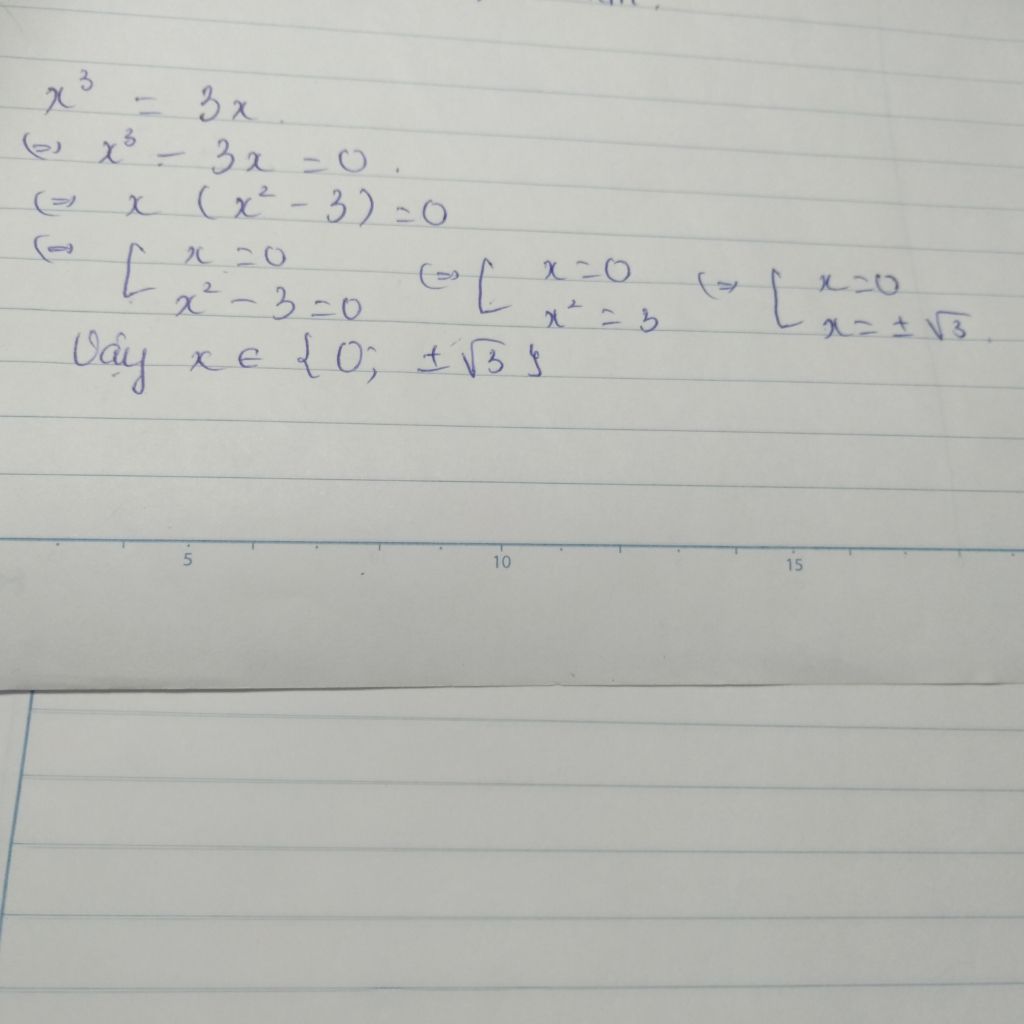 x³ = 3x.
⇔ x³ - 3x = 0.
⇔ x (x² - 3) = 0
⇔ [ x = 0 ⇔ [ x = 0 ⇔ [ x = 0
x² - 3 = 0 x² = 3 x = ± √3.
Vậy x ∈ { 0; ± √3 }
5 10 15